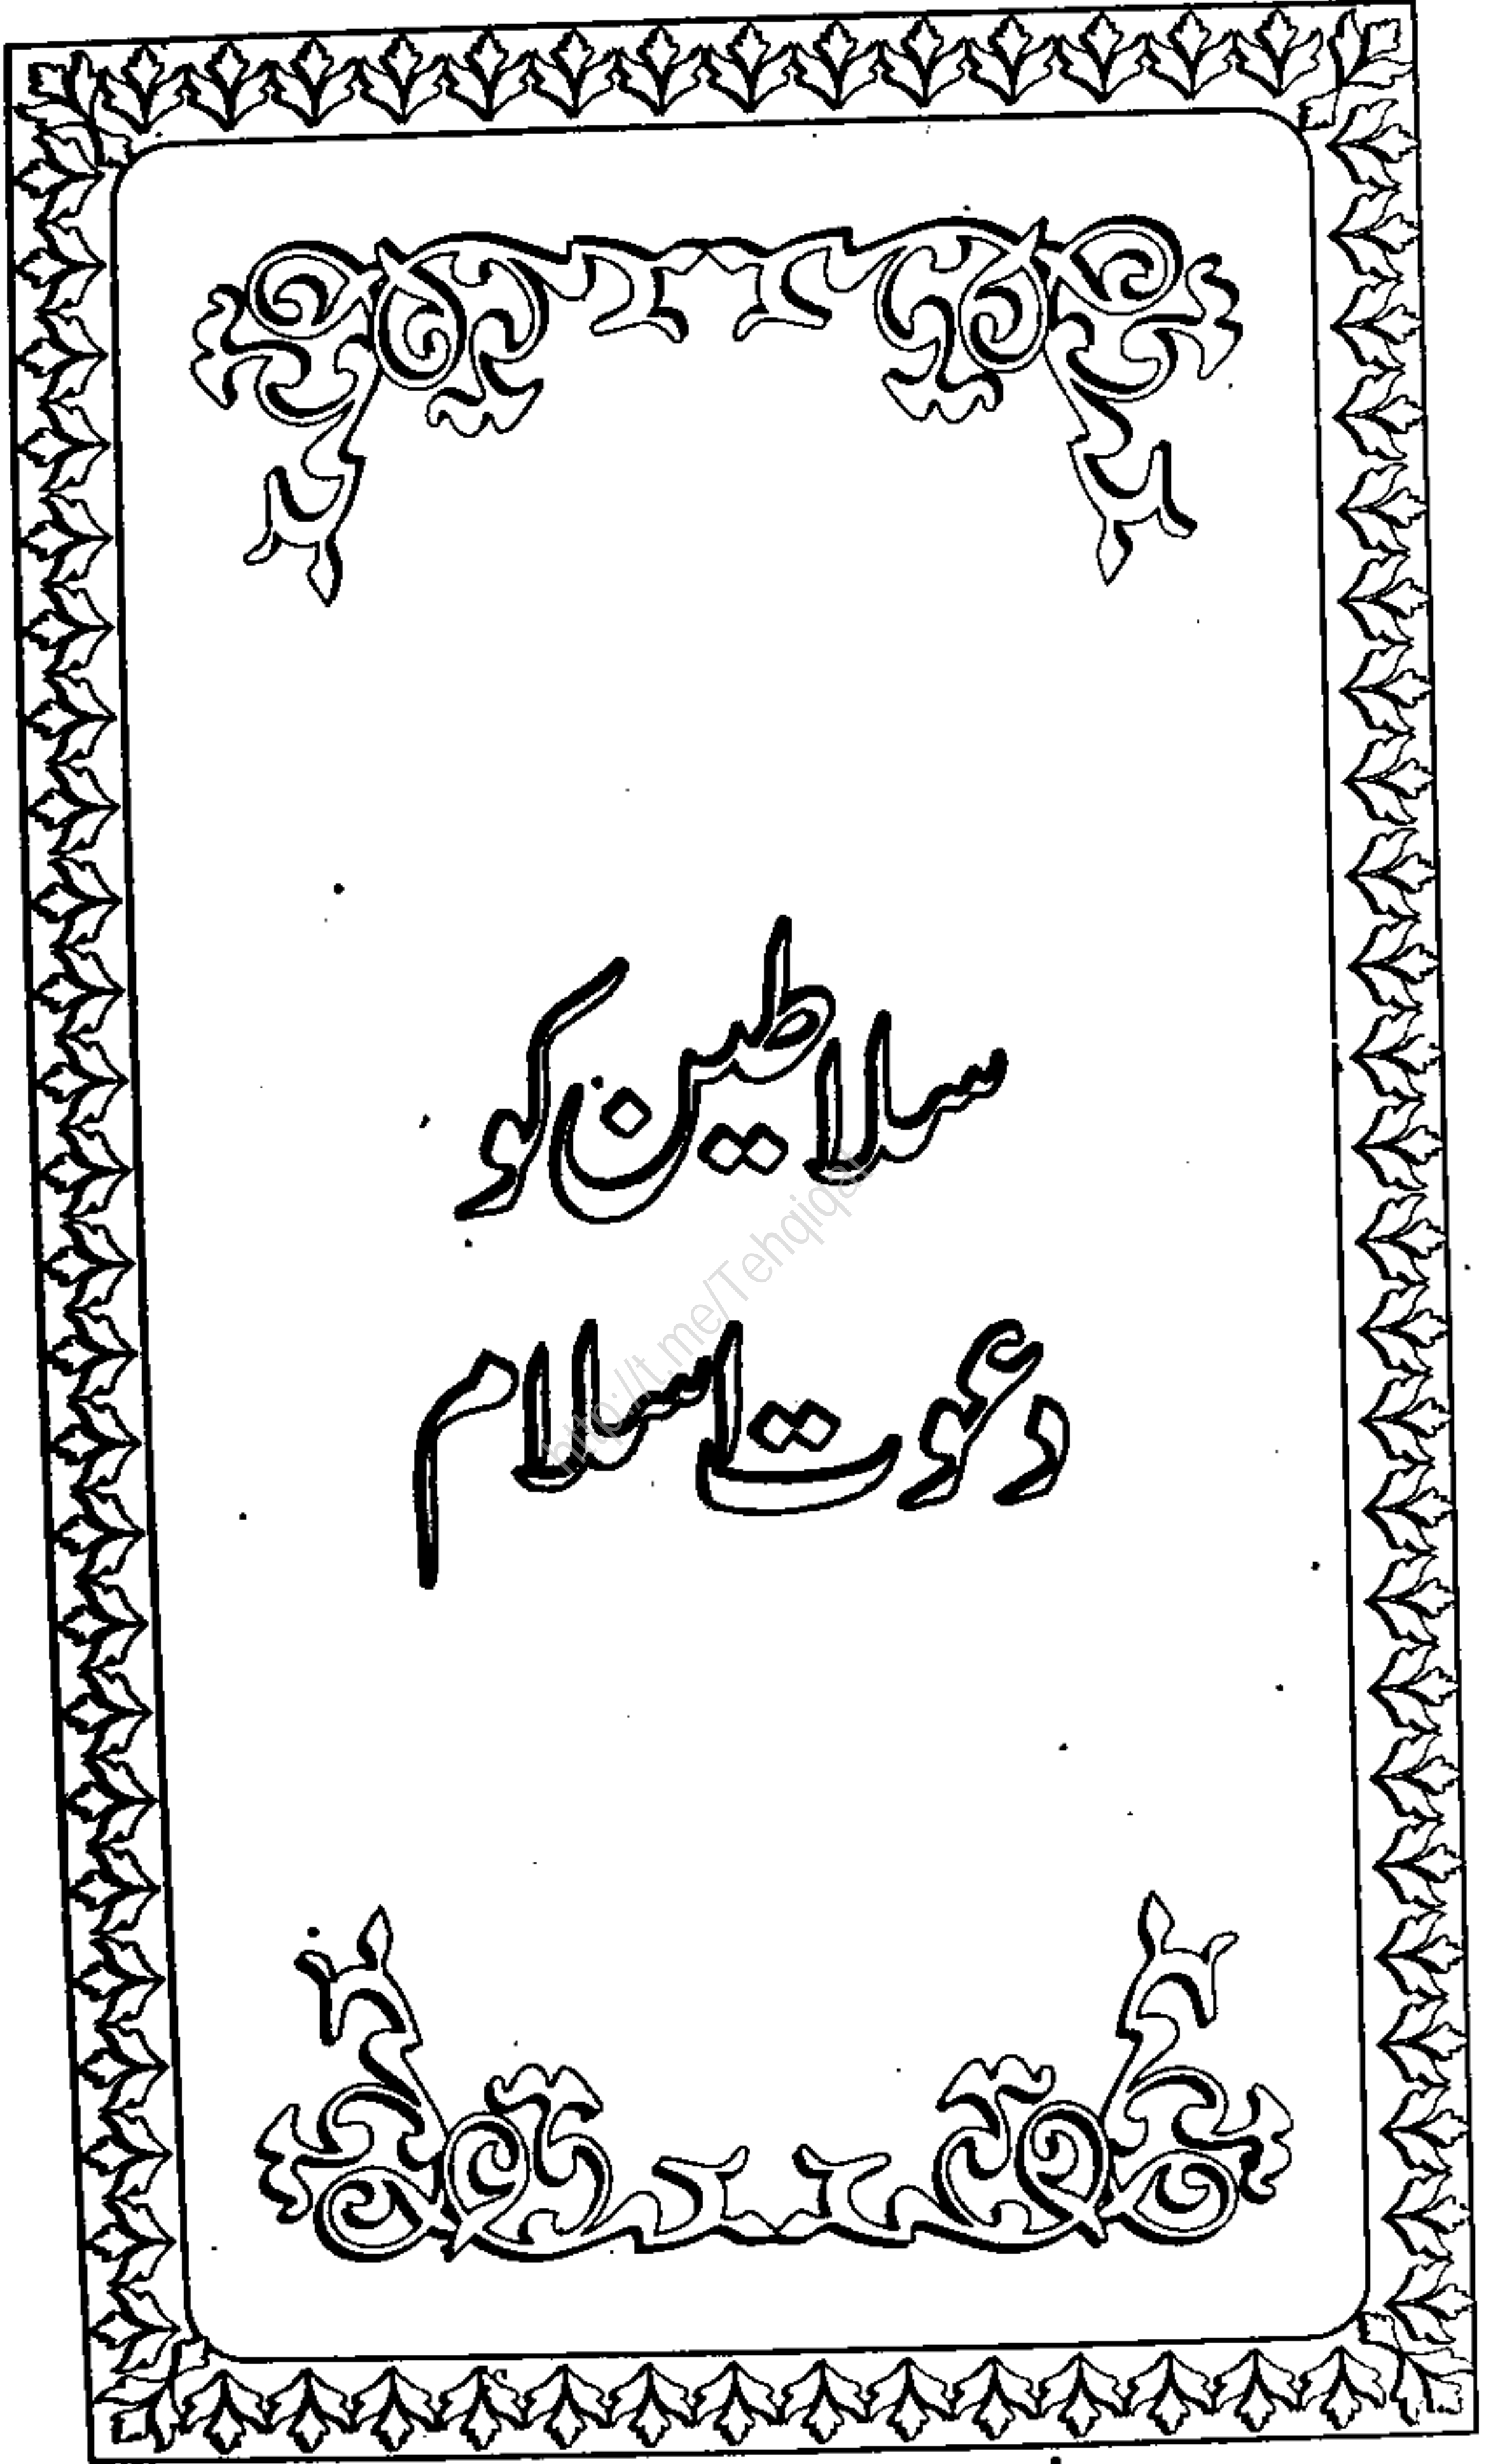 سلاطین کو
دعوت اسلام
http://t.me/Tehqiqat